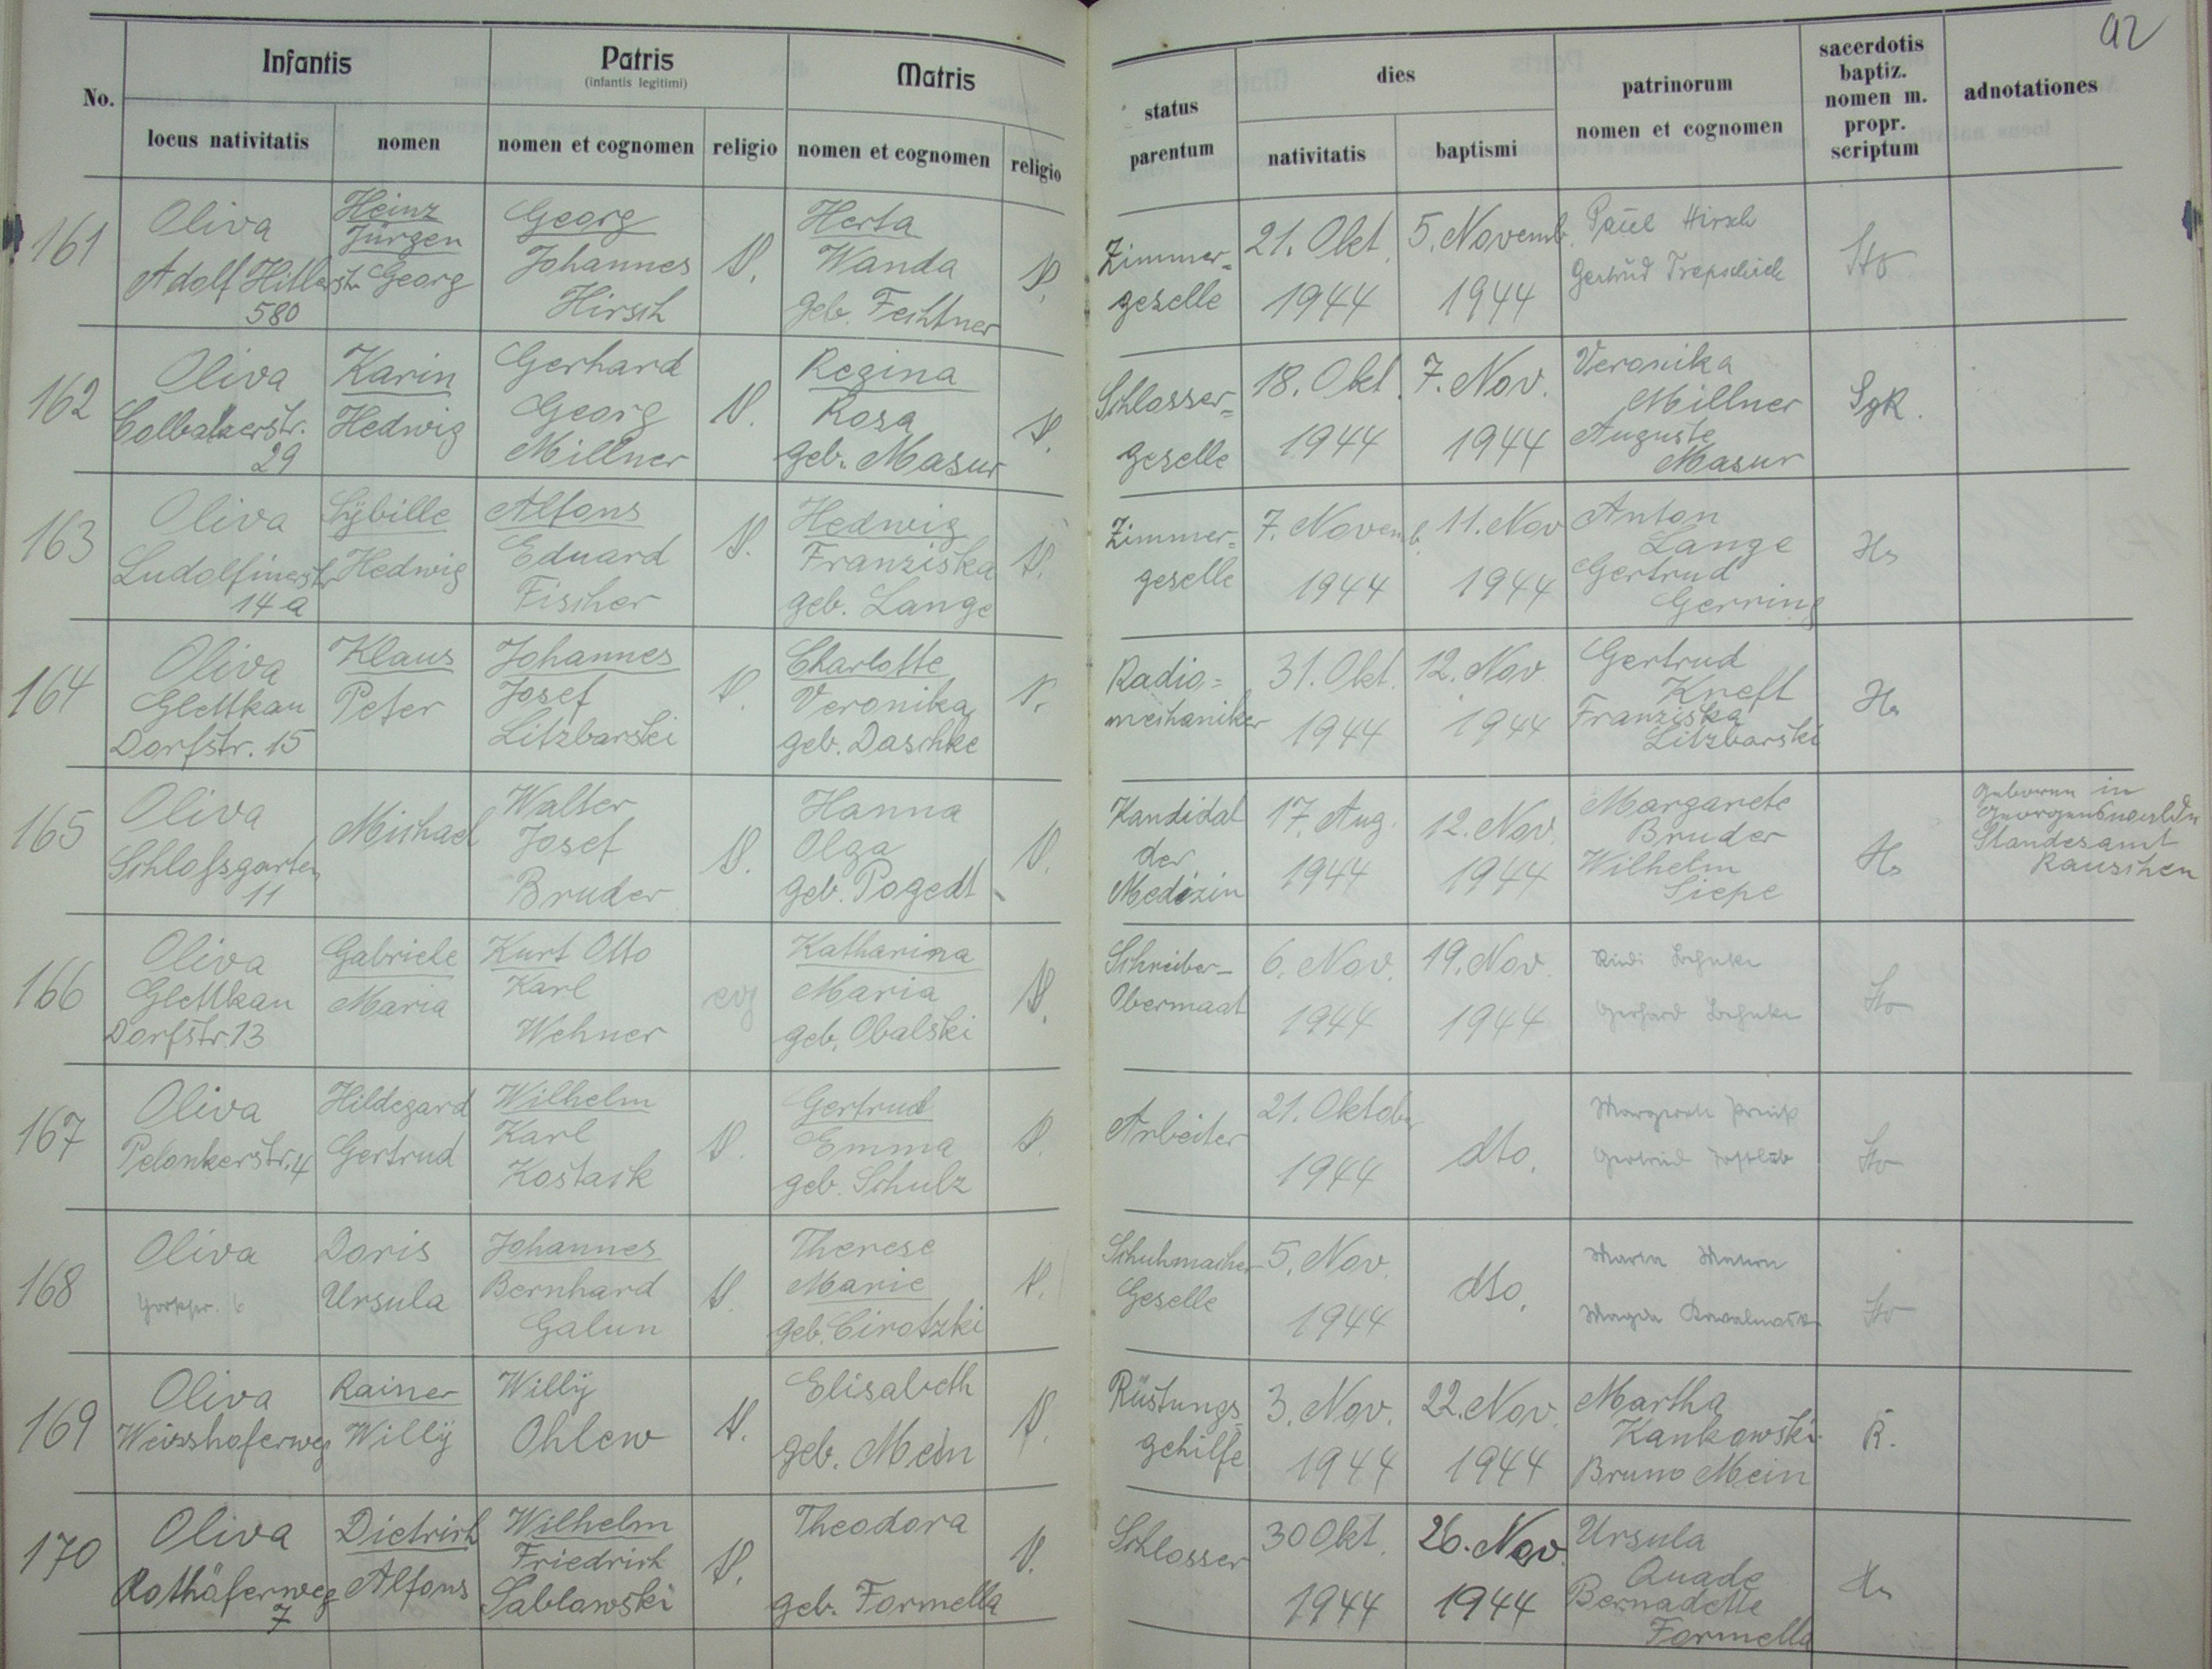 92
No.
Infantis
Patris
(infantis legitimi)
Matris
status
parentum
dies
patrinorum
nomen et cognomen
sacerdotis
baptiz.
nomen m.
propr.
scriptum
adnotationes
locus nativitatis
nomen
nomen et cognomen
religio
nomen et cognomen
religio
nativitatis
baptismi
161
Oliva
Adolf Hitlerstr.
580
Heinz
Jürgen
Georg
Georg
Johannes
Hirsch
Herta
Wanda
geb. Feichtner
Zimmer=
geselle
21. Okt.
1944
5. Novemb.
1944
Paul Hirsch
Gertrud
162
Oliva
29
Karin
Hedwig
Gerhard
Georg
Millner
Regina
Rosa
geb. Masur
Schlosser=
geselle
18. Okt.
1944
7. Nov.
1944
Veronika
Millner
Auguste
Masur
163
Oliva
Ludolfinerstr
14a
Sybille
Hedwig
Alfons
Eduard
Fischer
Hedwig
Franziska
geb. Lange
Zimmer=
geselle
7. Novemb.
1944
11. Nov
1944
Anton
Lange
Gertrud
Gerring
164
Oliva
Glettkau
Dorfstr. 15
Klaus
Peter
Johannes
Josef
Litzbarski
Charlotte
Veronika
geb. Daschke
Radio=
mechaniker
31. Okt.
1944
12. Nov.
1944
Gertrud
Kneft
Franziska
Litzbarski
165
Oliva
Schloßgarten
11
Michael
Walter
Josef
Bruder
Hanna
Olga
geb. Pogedt
Kandidat
der
Medizin
17. Aug.
1944
12. Nov.
1944
Margarete
Bruder
Wilhelm
Siepe
geboren in
Georgenswalde
Standesamt
Rauschen
166
Oliva
Glettkau
Dorfstr. 13
Gabriele
Maria
Kurt Otto
Karl
Wehner
evg
Katharina
Maria
geb. Obalski
Schreiber-
Obermaat
6. Nov.
1944
19. Nov.
1944
Gerhard
167
Oliva
Pelonkerstr. 4
Hildegard
Gertrud
Wilhelm
Karl
Kostack
Gertrud
Emma
geb. Schulz
Arbeiter
21. Oktober
1944
dto.
Gertrud
168
Oliva
Doris
Ursula
Johannes
Bernhard
Galun
Therese
Marie
geb. Cirotzki
Schuhmacher
Geselle
5. Nov.
1944
dto.
Maria
169
Oliva
Weisshoferweg
Rainer
Willÿ
Willÿ
Ohlew
Elisabeth
geb. Mein
Rüstungs=
gehilfe
3. Nov.
1944
22. Nov.
1944
Martha
Kankowski
Bruno Mein
R.
170
Oliva
Rothäferweg
7
Dietrich
Alfons
Wilhelm
Friedrich
Sablowski
Theodora
geb. Formella
Schlosser
30 Okt.
1944
26. Nov.
1944
Ursula
Quade
Bernadette
Formella